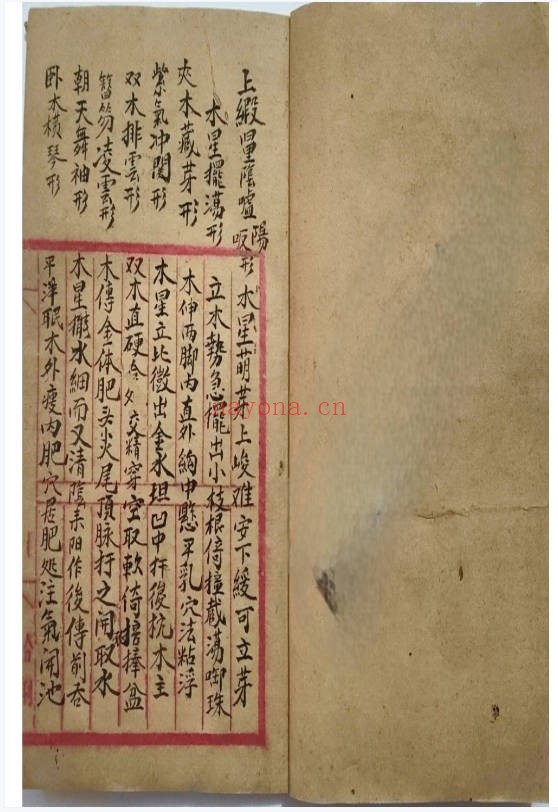 上緞星陰嘘陽吸形 木星萌芽上峻难安下緩可立芽
木星擺蕩形 立木勢急擺出小枝根倚撞截蕩啣珠
夾木藏芽形 木伸两脚内直外絢中懸平乳穴法粘浮
紫氣冲関形 木星立比徵出金水坦凹中扦後抗木主
双木排雲形 双木直硬合外交精穿空取軟倚捧盆
笏凌雲形 木傳金体肥头尖尾頂脉打之開取水
朝天舞袖形 木星擺水細而又清陰柔阳作後傳前吞
卧木横琴形 平洋眠木外瘦内肥穴居肥処注氣開池
nayona.cn